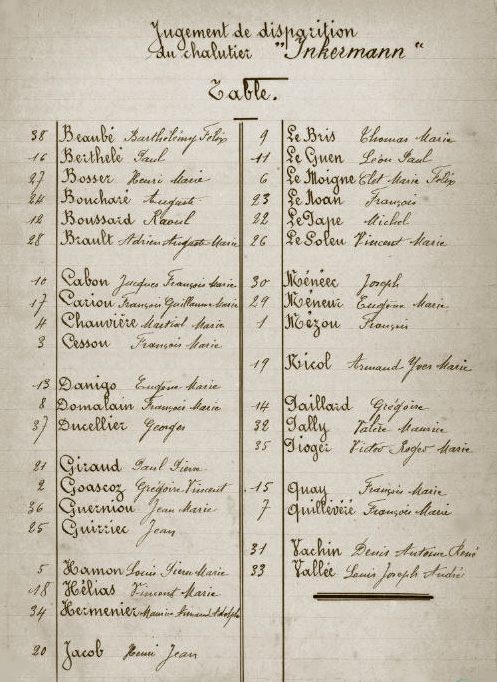 Jugement de disparition
du chalutier "Inkermann"
Table.
38 Beaubé Barthélémy Félix
16 Berthelé Paul
27 Bosser Henri Marie
24 Boucharé Auguste
12 Boussard Raoul
28 Brault Adrien August Marie
10 Cabon Jacques François Marie
17 Cariou François Guillaume Marie
4 Chauvière Martial Marie
3 Cesson François Marie
13 Danigo Eugène Marie
8 Domalain François Marie
37 Ducellier Georges
21 Giraud Paul Pierre
2 Goascoz Grégoire Vincent
36 Guerniou Jean Marie
25 Guirriec Jean
5 Hamon Louis Pierre Marie
18 Hélias Vincent Marie
34 Hermenier Maurice Vincent Adolph
20 Jacob Henri Jean
9 Le Bris Thomas Marie
11 Le Guen Léon Paul
6 Le Moigne Clet Marie Félix
23 Le Noan François
22 Le Pape Michel
26 Le Soleu Vincent Marie
30 Ménéec Joseph
29 Méneur Eugène Marie
1 Mézou François
19 Nicol Armand Yves Marie
14 Paillard Grégoire
32 Pally Valère Maurice
35 Pioger Victor Roger Marie
15 Quay François Marie
7 Quillévéré François Marie
31 Vachin Denis Antoine René
33 Vallée Louis Joseph André